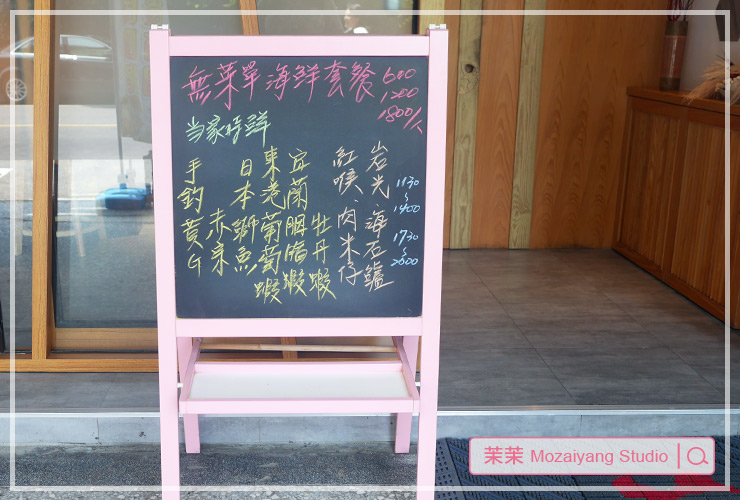 無菜單海鮮套餐 600
1200
1800/人
当家時鮮
岩光、海石鱸
紅喉、肉米仔
牡丹蝦
宜蘭胭脂蝦
東港葡萄蝦
日本獅魚
赤
手釣黃G
1130
~
1400
1730
~
2000
茉茉 Mozaiyang Studio